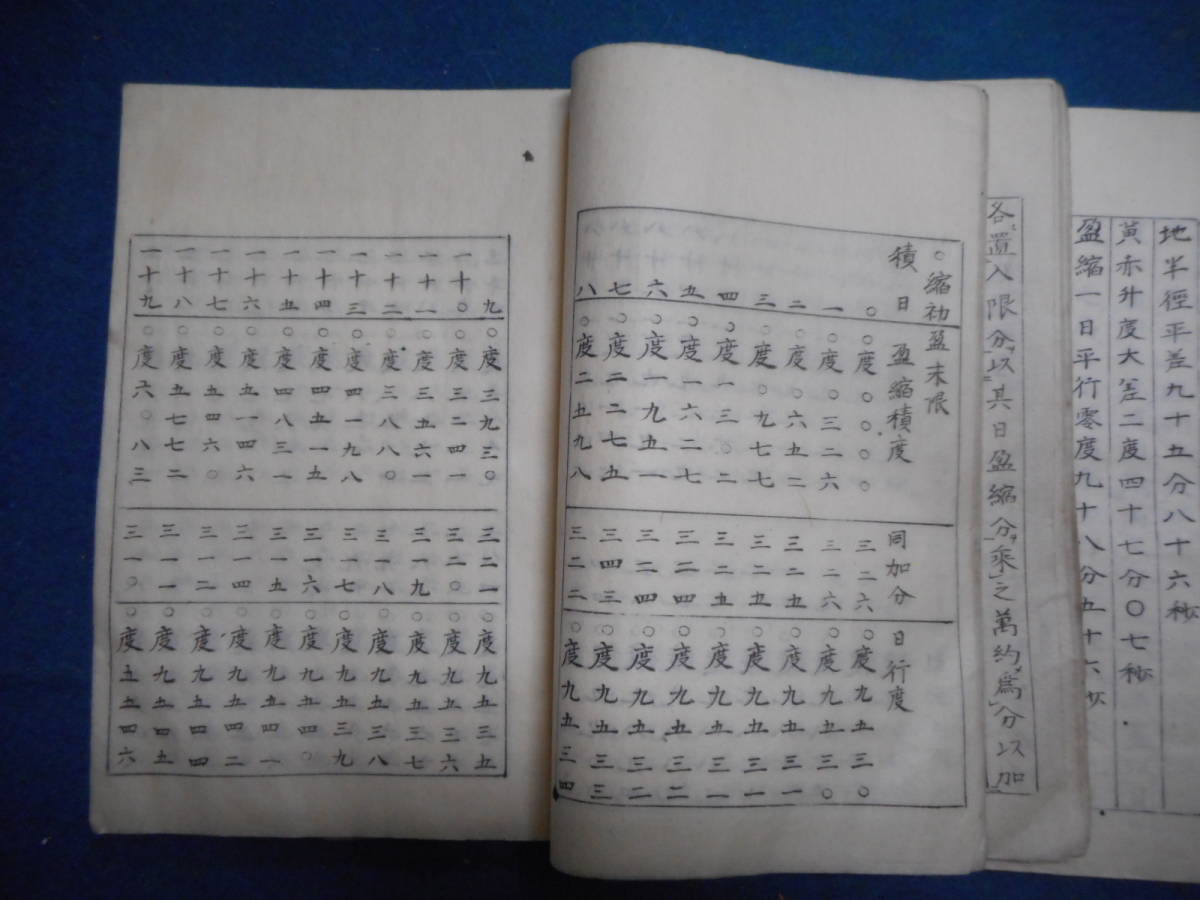 地半徑平差九十五分八十六秒
黄赤升度大差二度四十七分〇七秒
盈縮一日平行零度九十八分五十六秒
各置入限分以其日盈縮分乘之萬約爲分以加
○縮初盈末限
積日 盈縮積度 同加分 日行度
○ ○度○○○○ 三二六 ○度九五三○
一 ○度○三二六 三二六 ○度九五三○
二 ○度○六五二 三二五 ○度九五三一
三 ○度○九七七 三二五 ○度九五三一
四 ○度一三○二 三二五 ○度九五三一
五 ○度一六二七 三二四 ○度九五三二
六 ○度一九五一 三二四 ○度九五三二
七 ○度二二七五 三四三 ○度九五三三
八 ○度二五九八 三二二 ○度九五三四
九 ○度三九三○ 三二一 ○度九五三五
一十○ ○度三二四一 三二○ ○度九五三六
一十一 ○度三五六一 三一九 ○度九五三七
一十二 ○度三八八○ 三一八 ○度九五三八
一十三 ○度四一九八 三一七 ○度九五三九
一十四 ○度四五一五 三一六 ○度九五四○
一十五 ○度四八三一 三一五 ○度九五四一
一十六 ○度五一四六 三一四 ○度九五四二
一十七 ○度五四六○ 三一二 ○度九五四四
一十八 ○度五七七二 三一一 ○度九五四五
一十九 ○度六○八三 三一○ ○度五五四六